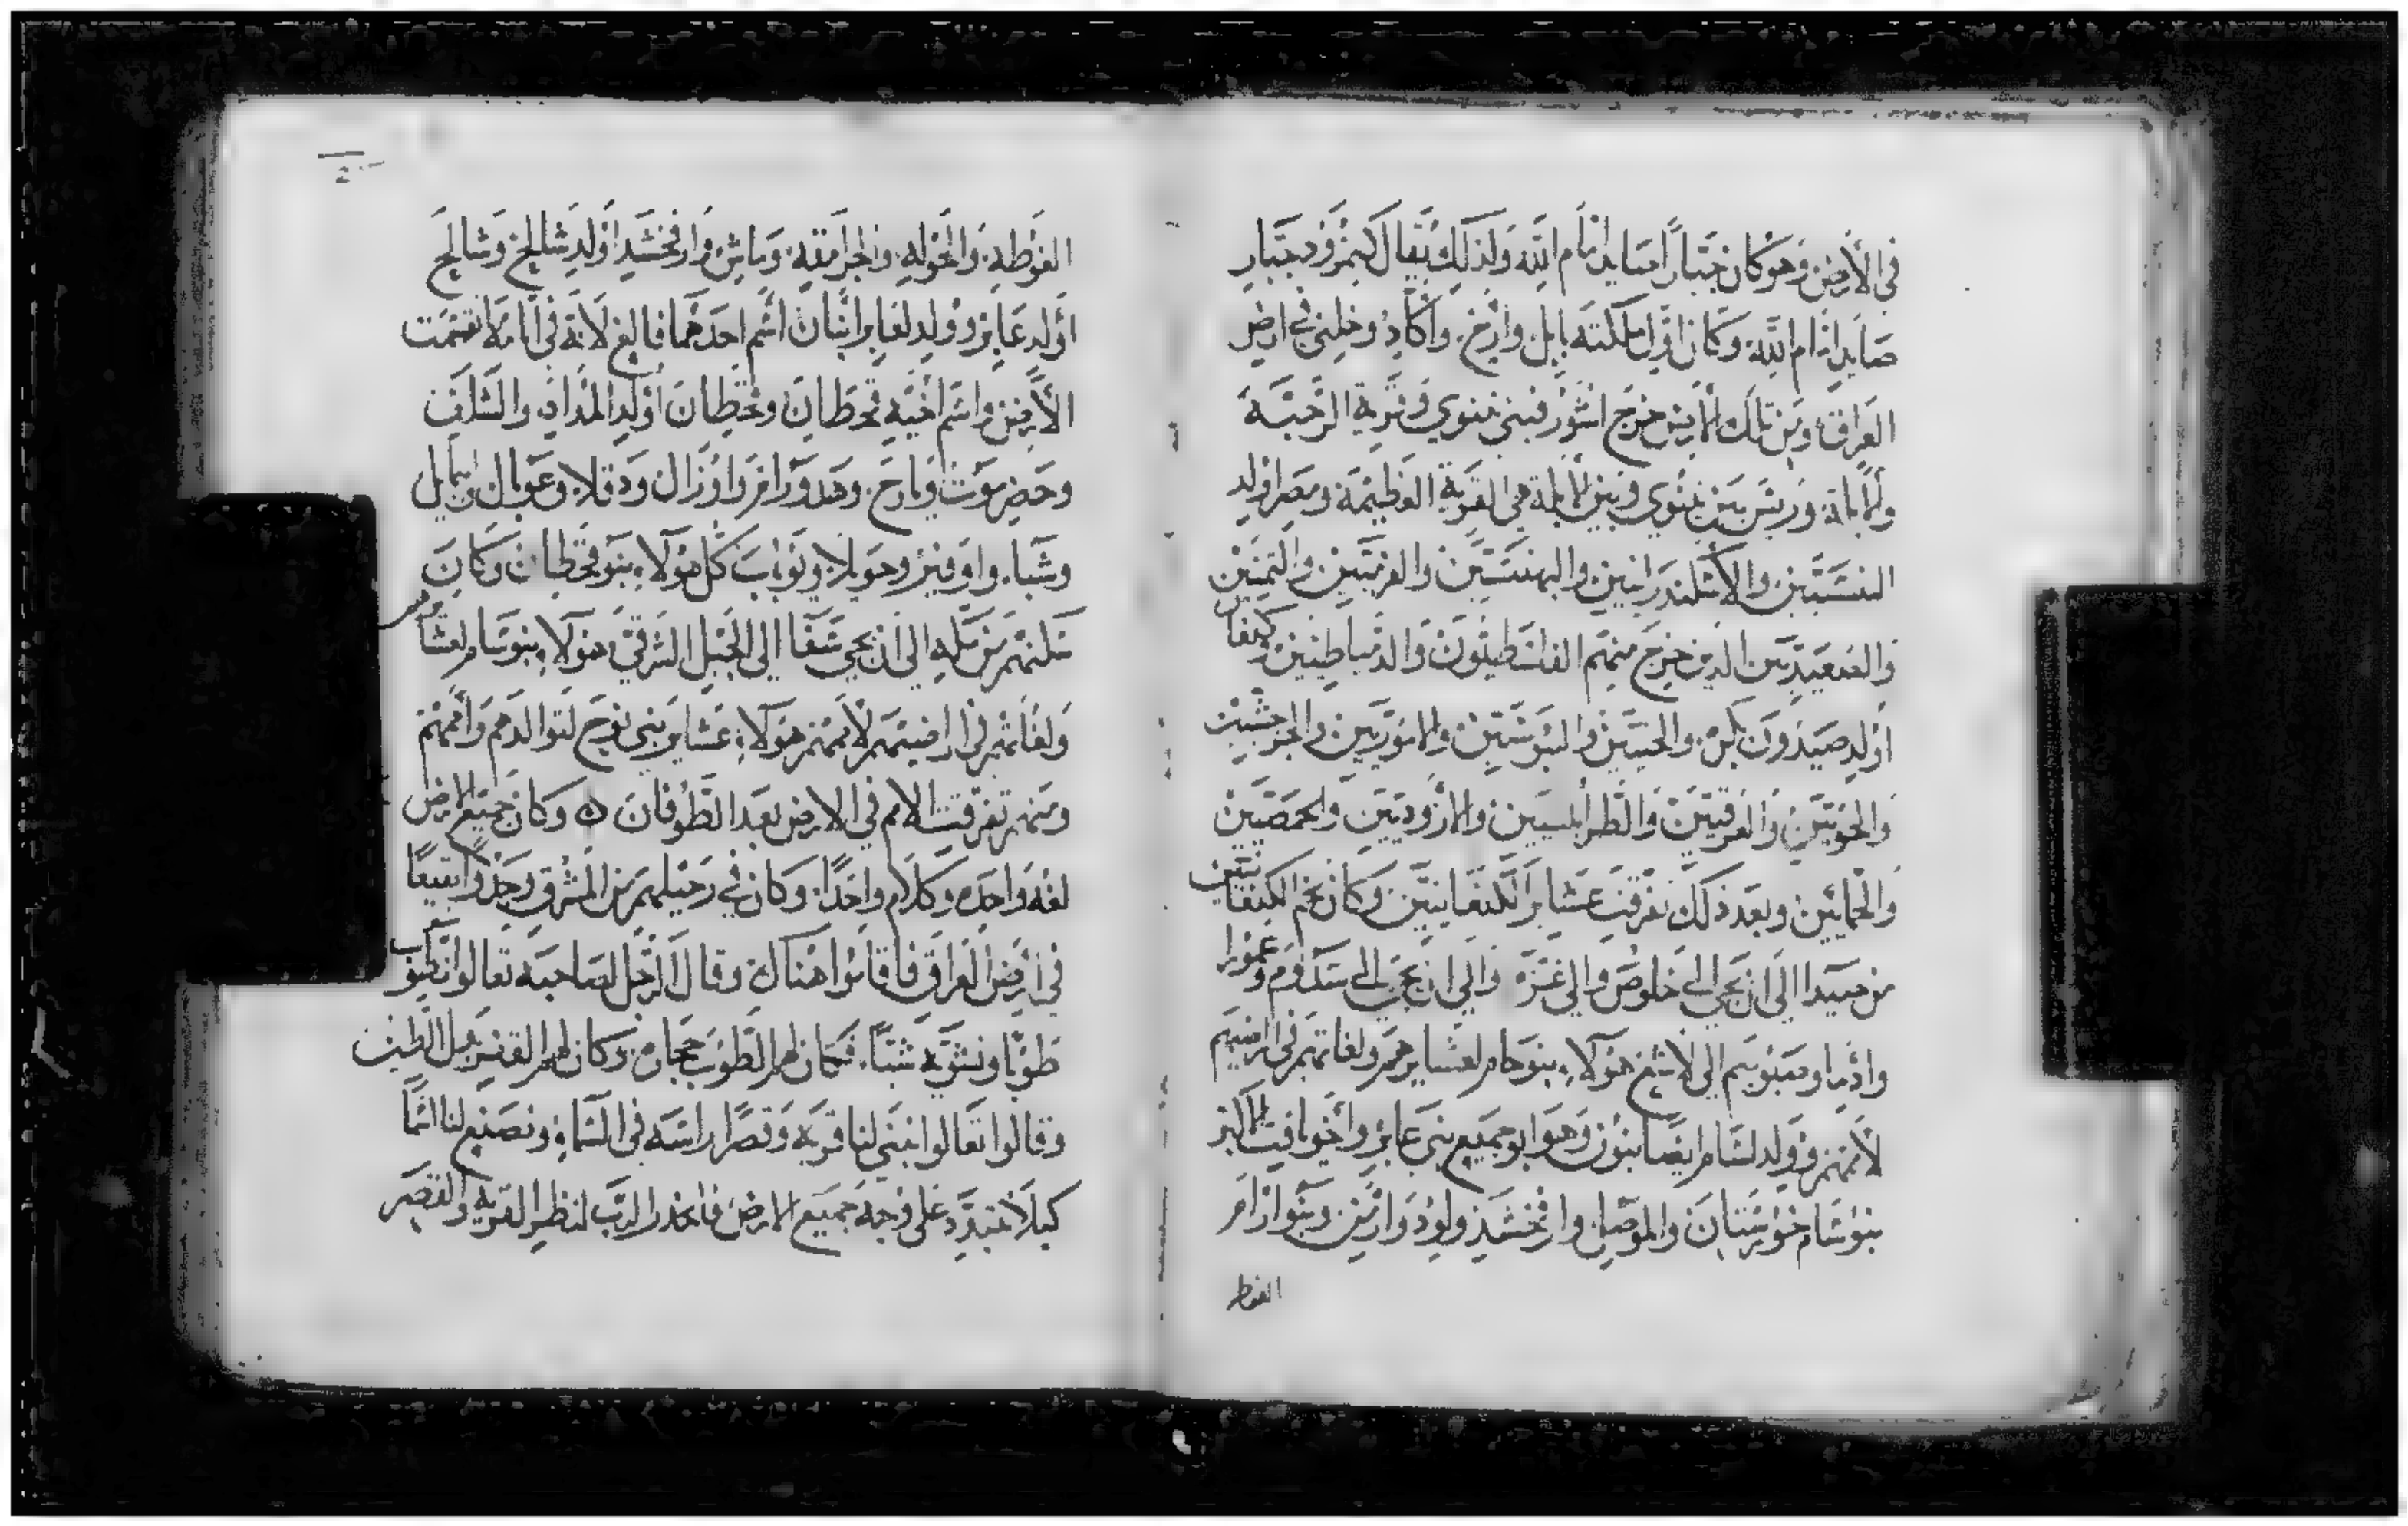 في الأرض وهو كان جبارًا صايد امام الله ولذلك يقال كنمرود جبار
صايد امام الله وكان اول مملكته بابل وارخ واكاد وخلنى في ارض
العراق ومن تلك الأرض خرج اشور فبنى نينوي وقرية الرحبة
والابلة وريسن بين نينوي وبين الابلة هي القرية العظيمة ومصر اولد
التنسيين والاسكندرانيين والبهنسيين والفرميين واليمنيين
والصعيديين الذين خرج منهم الفلسطيون والدمياطيين وكنعان
اولد صيدون بكره والحيتين واليبوسيين والاموريين والجرجشيين
والحويين والعرقيين والطرابلسيين والارواديين والحمصيين
والحمائيين وبعد ذلك تفرقت عشاير الكنعانيين وكان تخم الكنعانيين
من صيدا الى ان يجي الى خلوص والى غزه والى ان يجي الى سدوم وعمورا
وادما وصبويم الى لاشع هؤلاء بنو حام لعشايرهم ولغاتهم في اراضيهم
لأممهم وولد لسام ايضا بنون وهو ابو جميع بني عابر واخو يافت الاكبر
بنو سام خوزستان والموصل وارفخشذ ولود وارمن وبنو ارام
الغوطه
الغوطه والحوله والجرامقه وماش وارفخشد اولد شالخ وشالخ
اولد عابر وولد لعابر ابنان اسم احدهما فالغ لانه في ايامه انقسمت
الأرض واسم اخيه قحطان وقحطان اولد المداد والسلف
وحضرموت ويارح وهدورام واوزال ودقلا وعوبال وابيمايل
وشبا واوفير وحويلا ويوباب كل هؤلاء بنو قحطان وكان
مسكنهم من مكه الى ان يجي سفا الى الجبل الشرقي هؤلاء بنو سام لعشايرهم
ولغاتهم في اراضيهم لأممهم هؤلاء عشاير بني نوح لتوالدهم وأممهم
ومنهم تفرقت الامم في الارض بعد الطوفان ٥ وكان جميع الارض
لغه واحده وكلام واحدًا وكان في رحيلهم من المشرق وجدوا بقيعًا
في ارض العراق فاقاموا هناك وقال الرجل لصاحبه تعالوا نطوب
طوبًا ونشويه شيًا فكان لهم الطوب حجاره وكان لهم القفر بدل الطين
وقالوا تعالوا نبني لنا قريه وقصرًا راسه في السماء ونصنع لنا اسمًا
كيلا نتبدد على وجه جميع الارض فانحدر الرب لنظر القريه والقصر